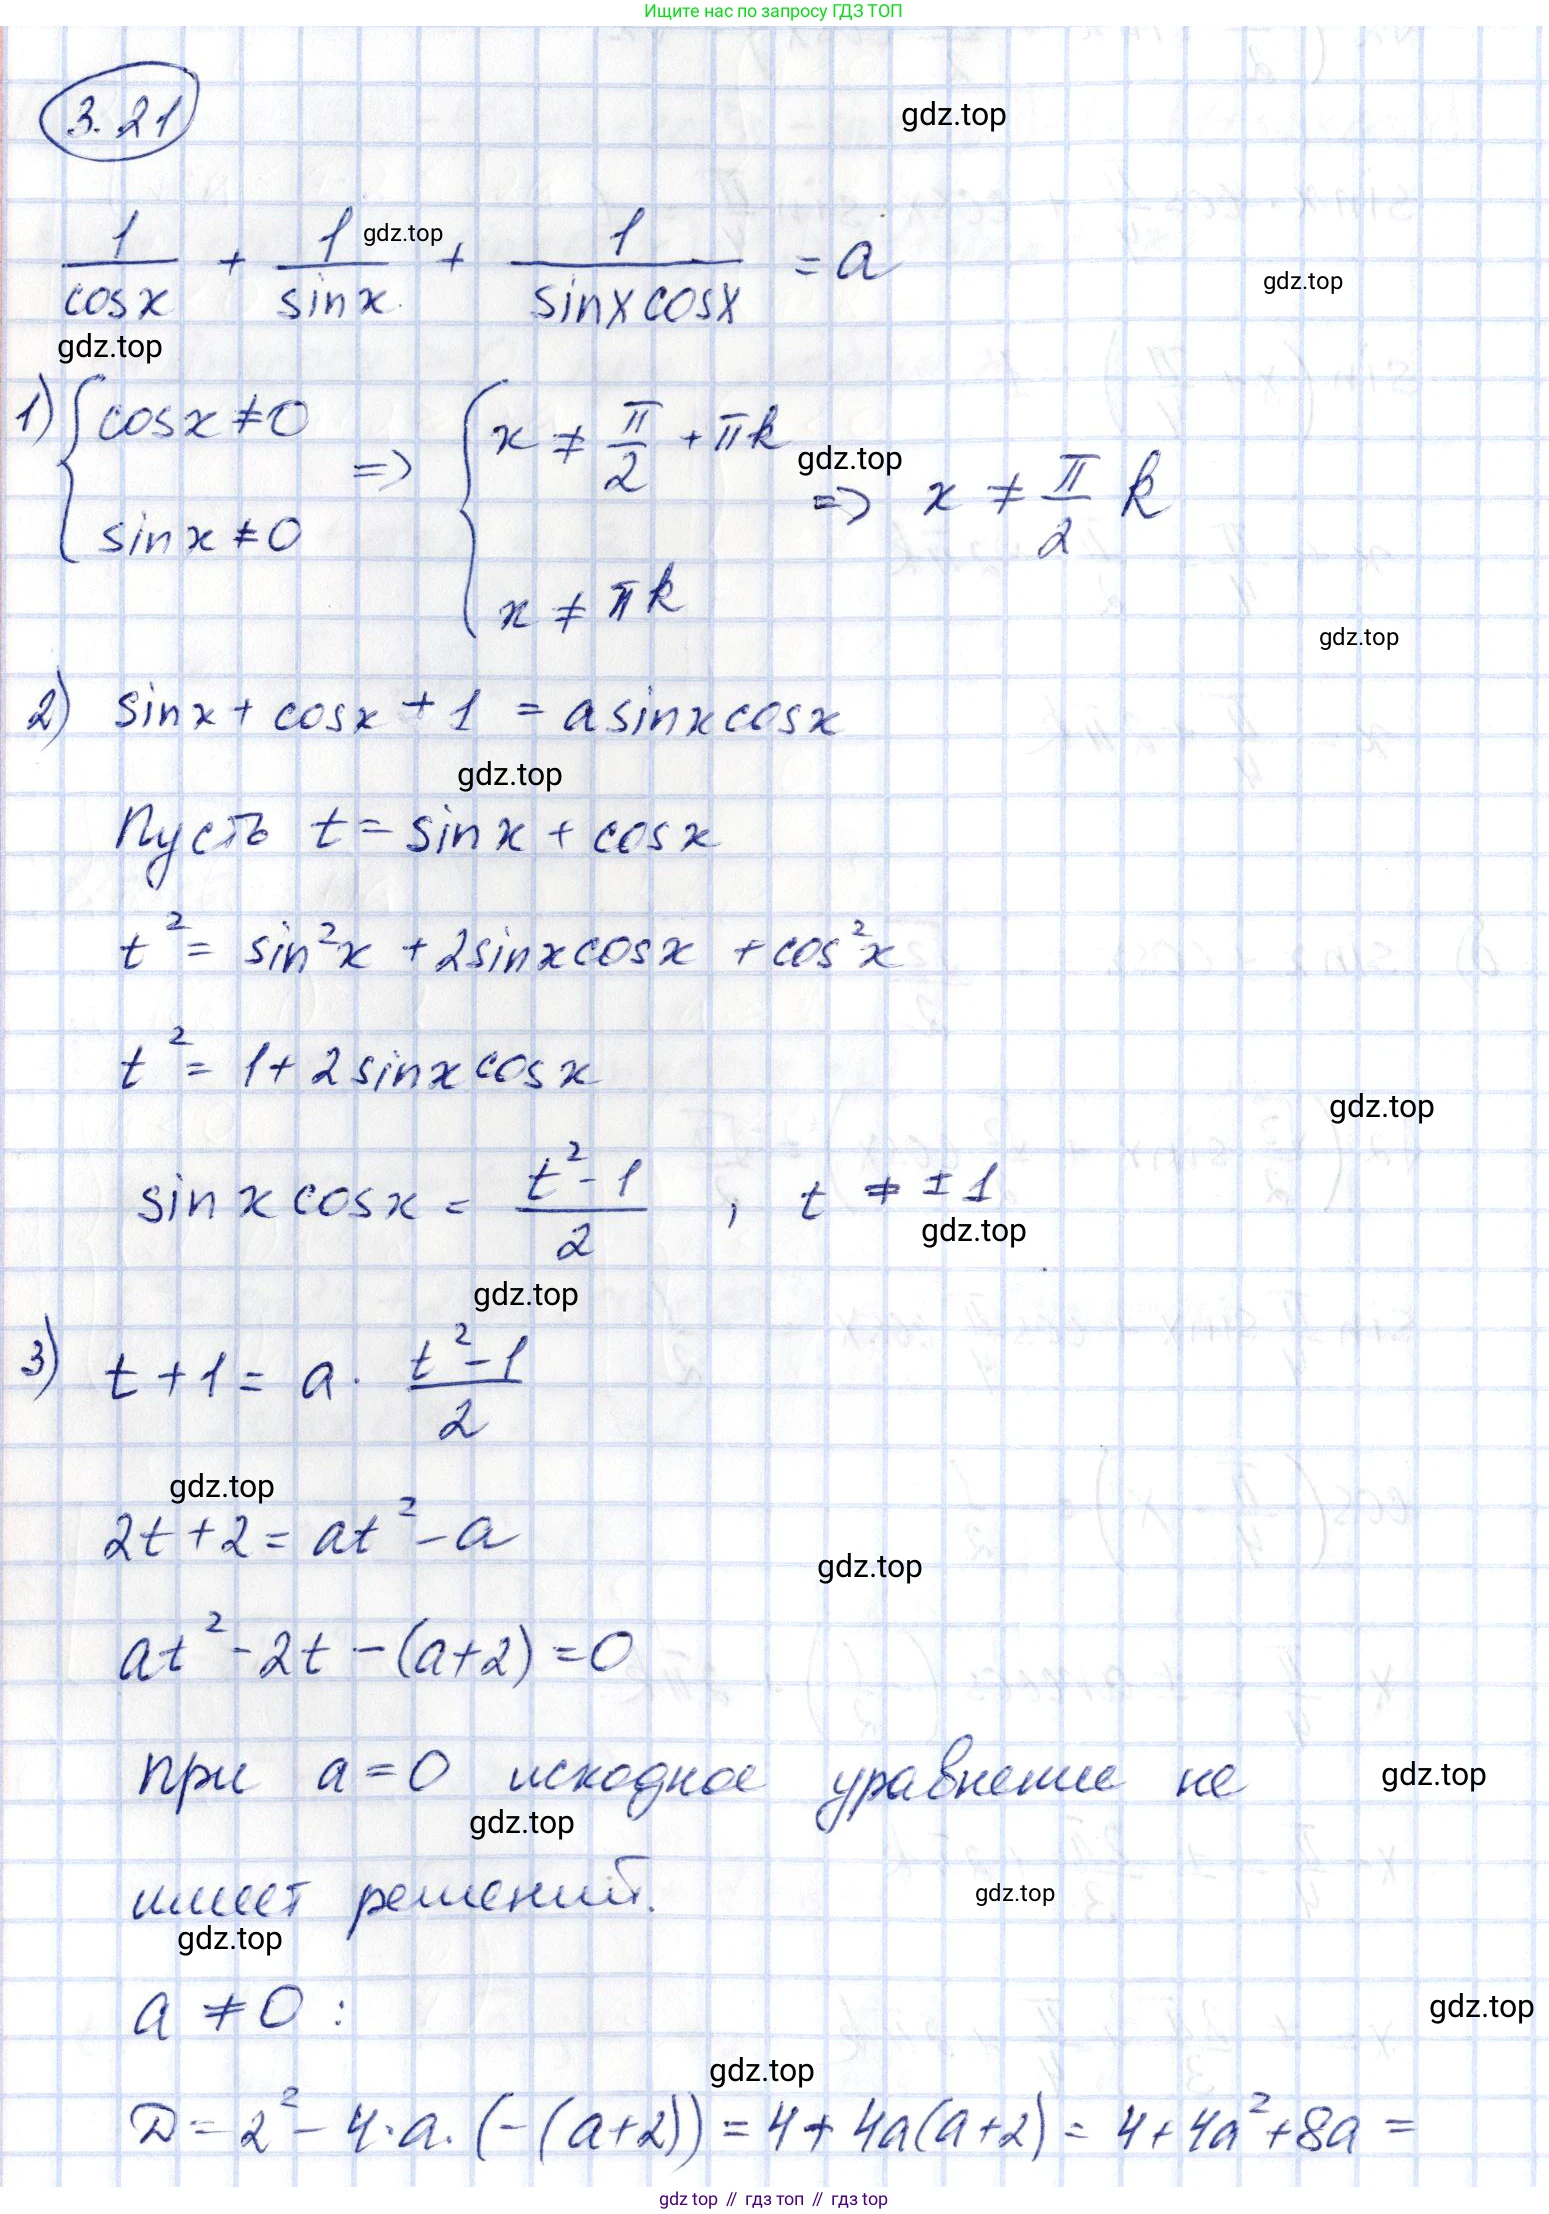 Ищите нас по запросу ГДЗ ТОП
3.21
gdz.top
1/cosx + 1/sinx + 1/sinxcosx = a
gdz.top
gdz.top
gdz.top
1) { cosx ≠ 0 sinx ≠ 0 => { x ≠ π/2 + πk x ≠ πk => x ≠ π/2 k
gdz.top
gdz.top
2) sinx + cosx + 1 = a sinxcosx
gdz.top
Пусть t = sinx + cosx
t² = sin²x + 2sinxcosx + cos²x
t² = 1 + 2sinxcosx
gdz.top
sinxcosx = t²-1/2 , t ≠ ±1
gdz.top
gdz.top
3) t + 1 = a · t²-1/2
gdz.top
2t + 2 = at² - a
gdz.top
at² - 2t - (a+2) = 0
при a = 0 исходное уравнение не
gdz.top
gdz.top
имеет решений.
gdz.top
gdz.top
a ≠ 0 :
gdz.top
gdz.top
D = 2² - 4·a·(-(a+2)) = 4 + 4a(a+2) = 4 + 4a² + 8a =
gdz top // гдз топ // гдз top